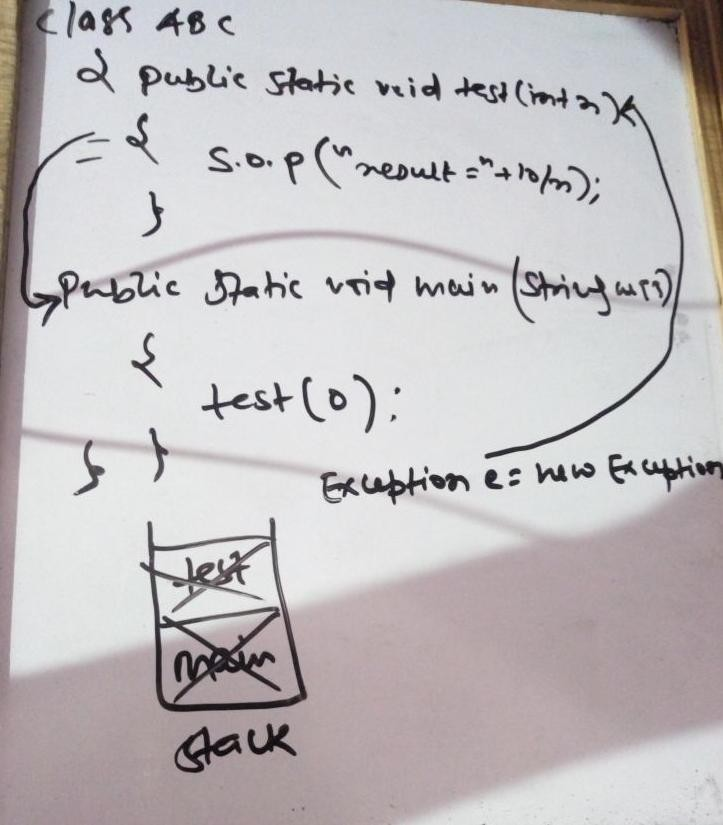 class ABC
{ public static void test(int n)
{
S.o.p("result="+10/n);
}
public static void main(String ar[])
{
test(0);
} }
Exception e= new Exception
test
main
stack